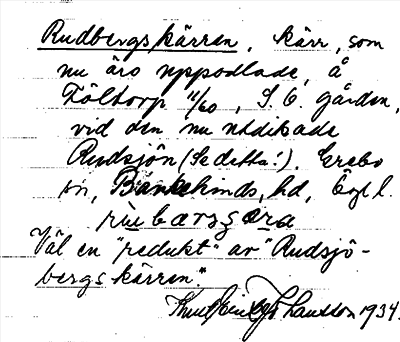 Rudbergskärren, kärr, som
nu äro uppodlade, å
Töltorp 4/60, S. O. gården,
vid den nu utdikade
Rudsjön (Se detta!). Grebo
sn, Bankekinds hd, Ögl.
Väl en "redukt" av "Rudsjö-
bergskärren."
1934.